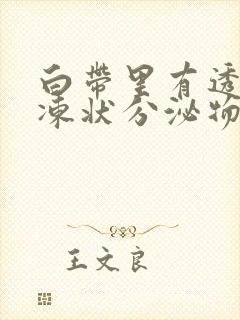 白带里有透
凍状分泌物
王文良